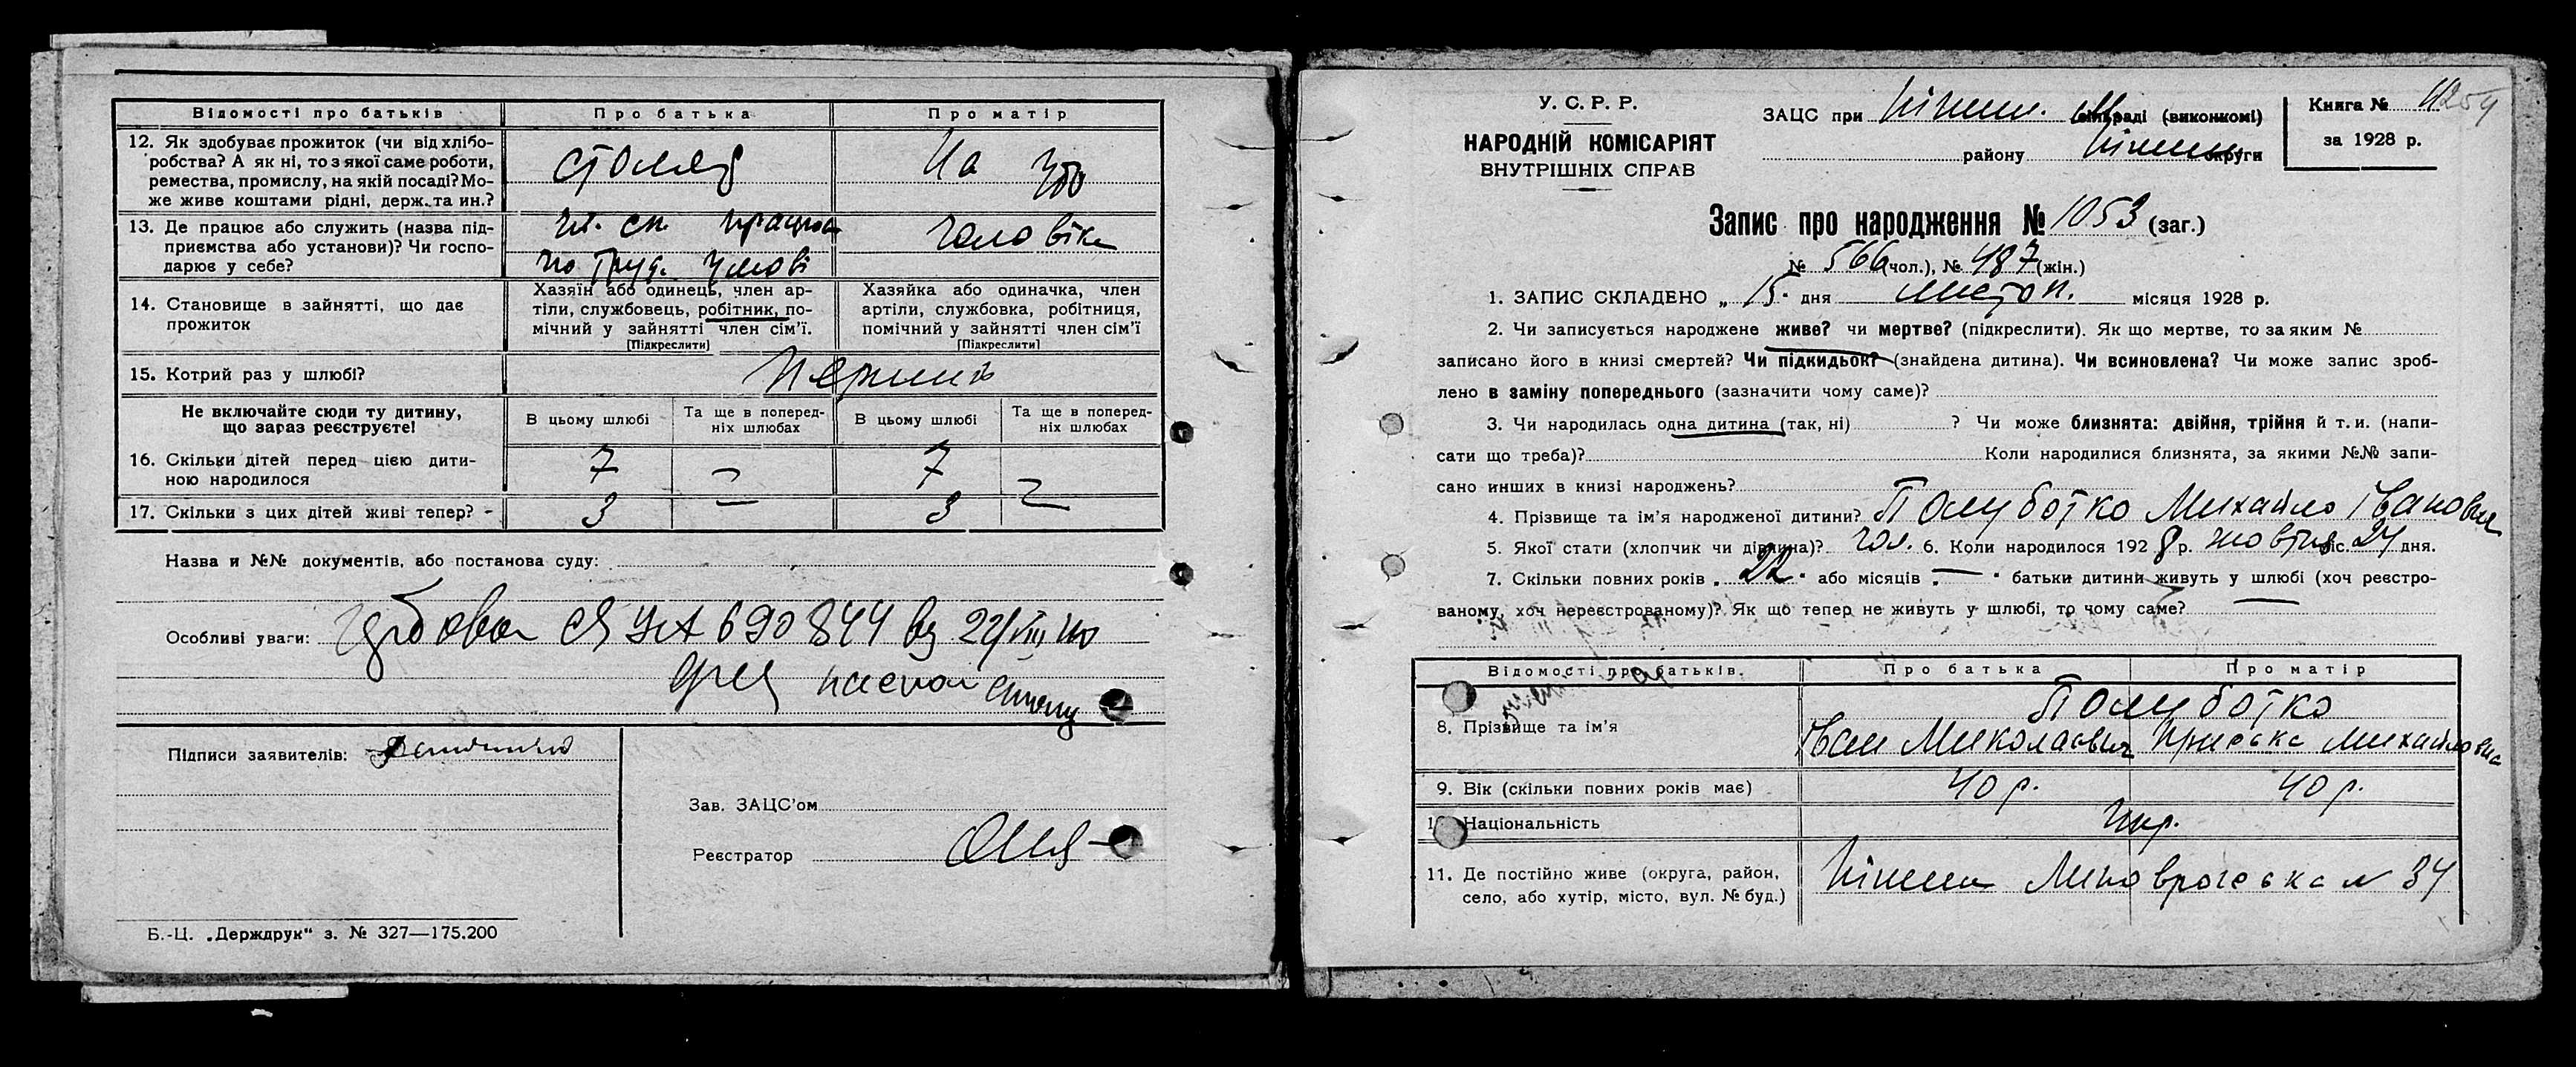 Відомості про батьків Про батька Про матір
12. Як здобуває прожиток (чи від хлібо-
робства? А як ні, то з якої саме роботи,
ремества, промислу, на якій посаді? Мо-
же живе коштами рідні, держ. та ин.?
столяр
На
13. Де працює або служить (назва під-
приємства або установи)? Чи госпо-
дарює у себе?
чл. сп. працює
по труд. умові
чоловіка
14. Становище в зайнятті, що дає
прожиток
Хазяїн або одинець, член ар-
тіли, службовець, робітник, по-
мічний у зайнятті член сім'ї.
[Підкреслити]
Хазяйка або одиначка, член
артіли, службовка, робітниця,
помічний у зайнятті член сім'ї
[Підкреслити]
15. Котрий раз у шлюбі?
Перший
Не включайте сюди ту дитину,
що зараз реєструєте!
В цьому шлюбі Та ще в поперед-
ніх шлюбах В цьому шлюбі Та ще в поперед-
ніх шлюбах
16. Скільки дітей перед цією дити-
ною народилося
7 – 7 –
17. Скільки з цих дітей живі тепер? -
3 – 3 –
Назва и №№ документів, або постанова суду:
Особливі уваги: 690844 22/VIII
Підписи заявителів:
Зав. ЗАЦС'ом
Реєстратор
Б.-Ц. „Держдрук" з. № 327—175.200
У. С. Р. Р.
НАРОДНІЙ КОМІСАРІЯТ
ВНУТРІШНІХ СПРАВ
ЗАЦС при Ніжин. раді (виконкомі)
району Ніжин округи
Книга №
за 1928 р.
Запис про народження № 1053 (заг.)
№ 566 (чол.), № 487 (жін.)
1. ЗАПИС СКЛАДЕНО „ 15 " дня листоп. місяця 1928 р.
2. Чи записується народжене живе? чи мертве? (підкреслити). Як що мертве, то за яким №
записано його в книзі смертей? Чи підкидьок? (знайдена дитина). Чи всиновлена? Чи може запис зроб-
лено в заміну попереднього (зазначити чому саме)?
3. Чи народилась одна дитина (так, ні) ? Чи може близнята: двійня, трійня й т. и. (напи-
сати що треба)? Коли народилися близнята, за якими №№ запи-
сано инших в книзі народжень?
4. Прізвище та ім'я народженої дитини? Полуботко Михайло Іванович
5. Якої стати (хлопчик чи дівчина)? чол. 6. Коли народилося 1928 р. жовтня міс. 24 дня.
7. Скільки повних років „ 22 " або місяців „ — " батьки дитини живуть у шлюбі (хоч реєстро-
ваному, хоч нереєстрованому)? Як що тепер не живуть у шлюбі, то чому саме? —
Відомості про батьків. Про батька Про матір
8. Прізвище та ім'я
Полуботко
Іван Миколаєвич Приська Михайловна
9. Вік (скільки повних років має) 40 р. 40 р.
10. Національність укр.
11. Де постійно живе (округа, район,
село, або хутір, місто, вул. № буд.)
Ніжин № 34